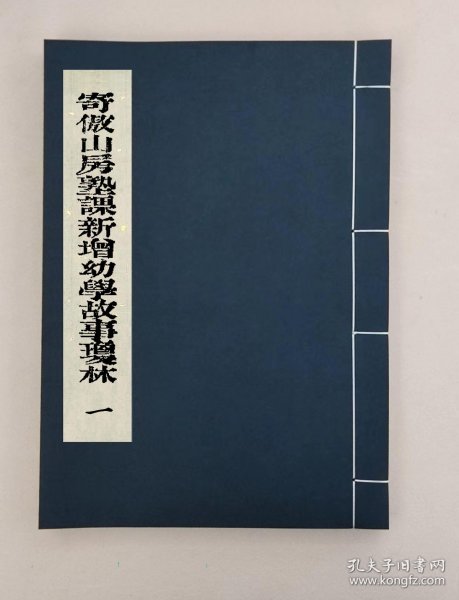 寄傲山房塾課新增幼學故事瓊林 一
孔夫子旧书网
www.kongfz.com